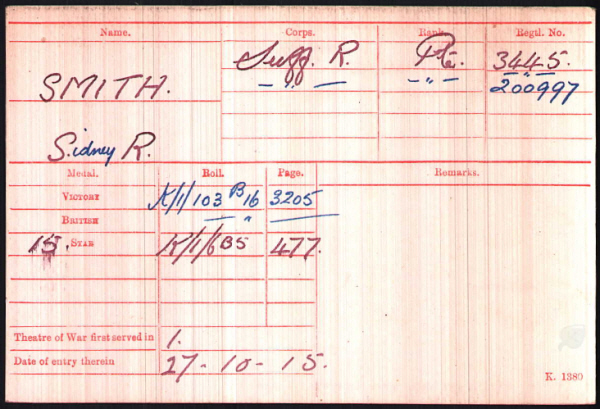 Name. Corps. Rank. Regtl. No.
SMITH. Suff. R. Pte. 3445.
— " — — " — 200997
Sidney R.
Medal. Roll. Page. Remarks.
VICTORY K/1/103 B16 3205
BRITISH — " —
15. STAR K/1/6B5 477.
Theatre of War first served in 1.
Date of entry therein 27-10-15.
K. 1380